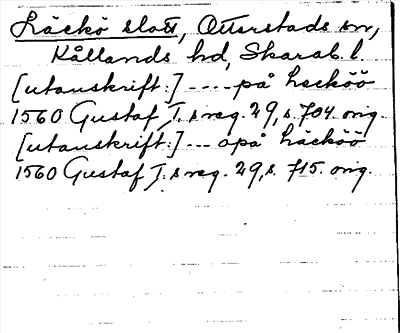 Läckö slott, Otterstads sn,
Kållands hd, Skarab. l.
[utanskrift:] ---- på hecköö
1560 Gustaf I:s reg. 29, s. 704. orig.
[utanskrift:] --- opå Läcköö
1560 Gustaf I:s reg. 29, s. 715. orig.